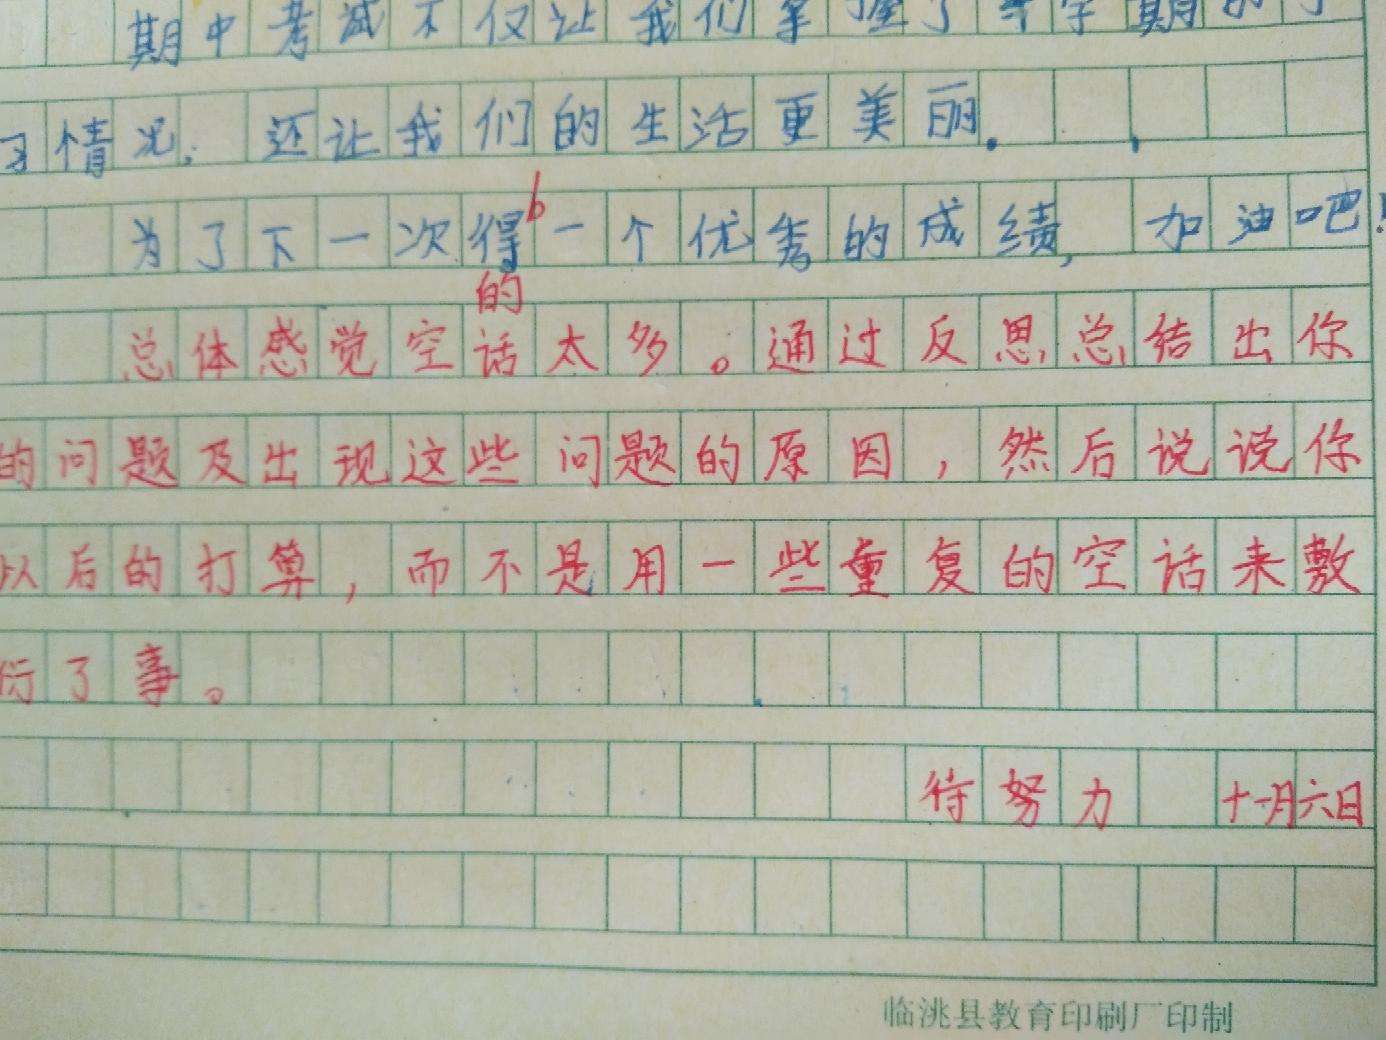 期中考试不仅让我们掌握了半学期的学
习情况，还让我们的生活更美丽.
为了下一次得一个优秀的成绩，加油吧！
的
总体感觉空话太多。通过反思总结出你
的问题及出现这些问题的原因，然后说说你
以后的打算，而不是用一些重复的空话来敷
衍了事。
待努力 十一月六日
临洮县教育印刷厂印制